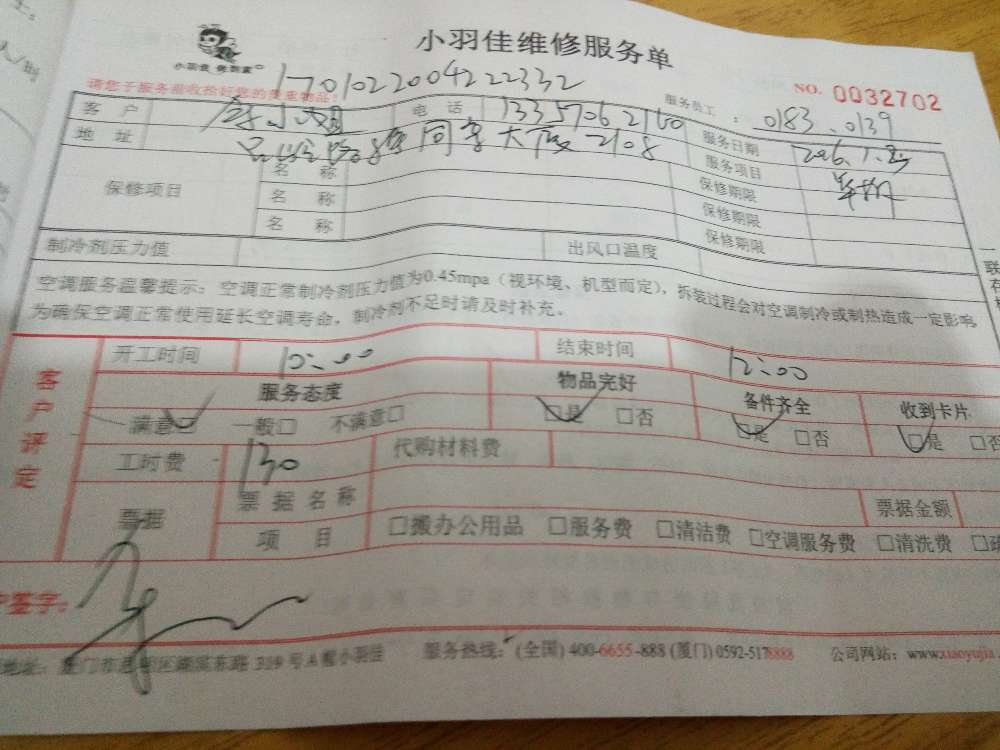 小羽佳维修服务单
小羽佳
17010220042 22332
请您于服务前收捡好您的贵重物品!
NO. 0032702
服务员工: 0183、0139
客户 电话 13357062160 服务日期
地址 2108 服务项目
保修项目 名称 保修期限
名称 保修期限
名称 保修期限
制冷剂压力值 出风口温度
空调服务温馨提示:空调正常制冷剂压力值为0.45mpa(视环境、机型而定),拆装过程会对空调制冷或制热造成一定影响,
为确保空调正常使用延长空调寿命,制冷剂不足时请及时补充。
客户评定
开工时间 10:00 结束时间 12:00
服务态度 物品完好 备件齐全 收到卡片
满意□ 一般□ 不满意□ □是 □否 □是 □否 □是 □否
工时费 130 代购材料费
票据 票据名称 票据金额
项目 □搬办公用品 □服务费 □清洁费 □空调服务费 □清洗费
签字:
地址: 319号A幢小羽佳 服务热线:(全国) 400-6655-888 (厦门) 0592-5178888 公司网站: www.xiaoyujia.